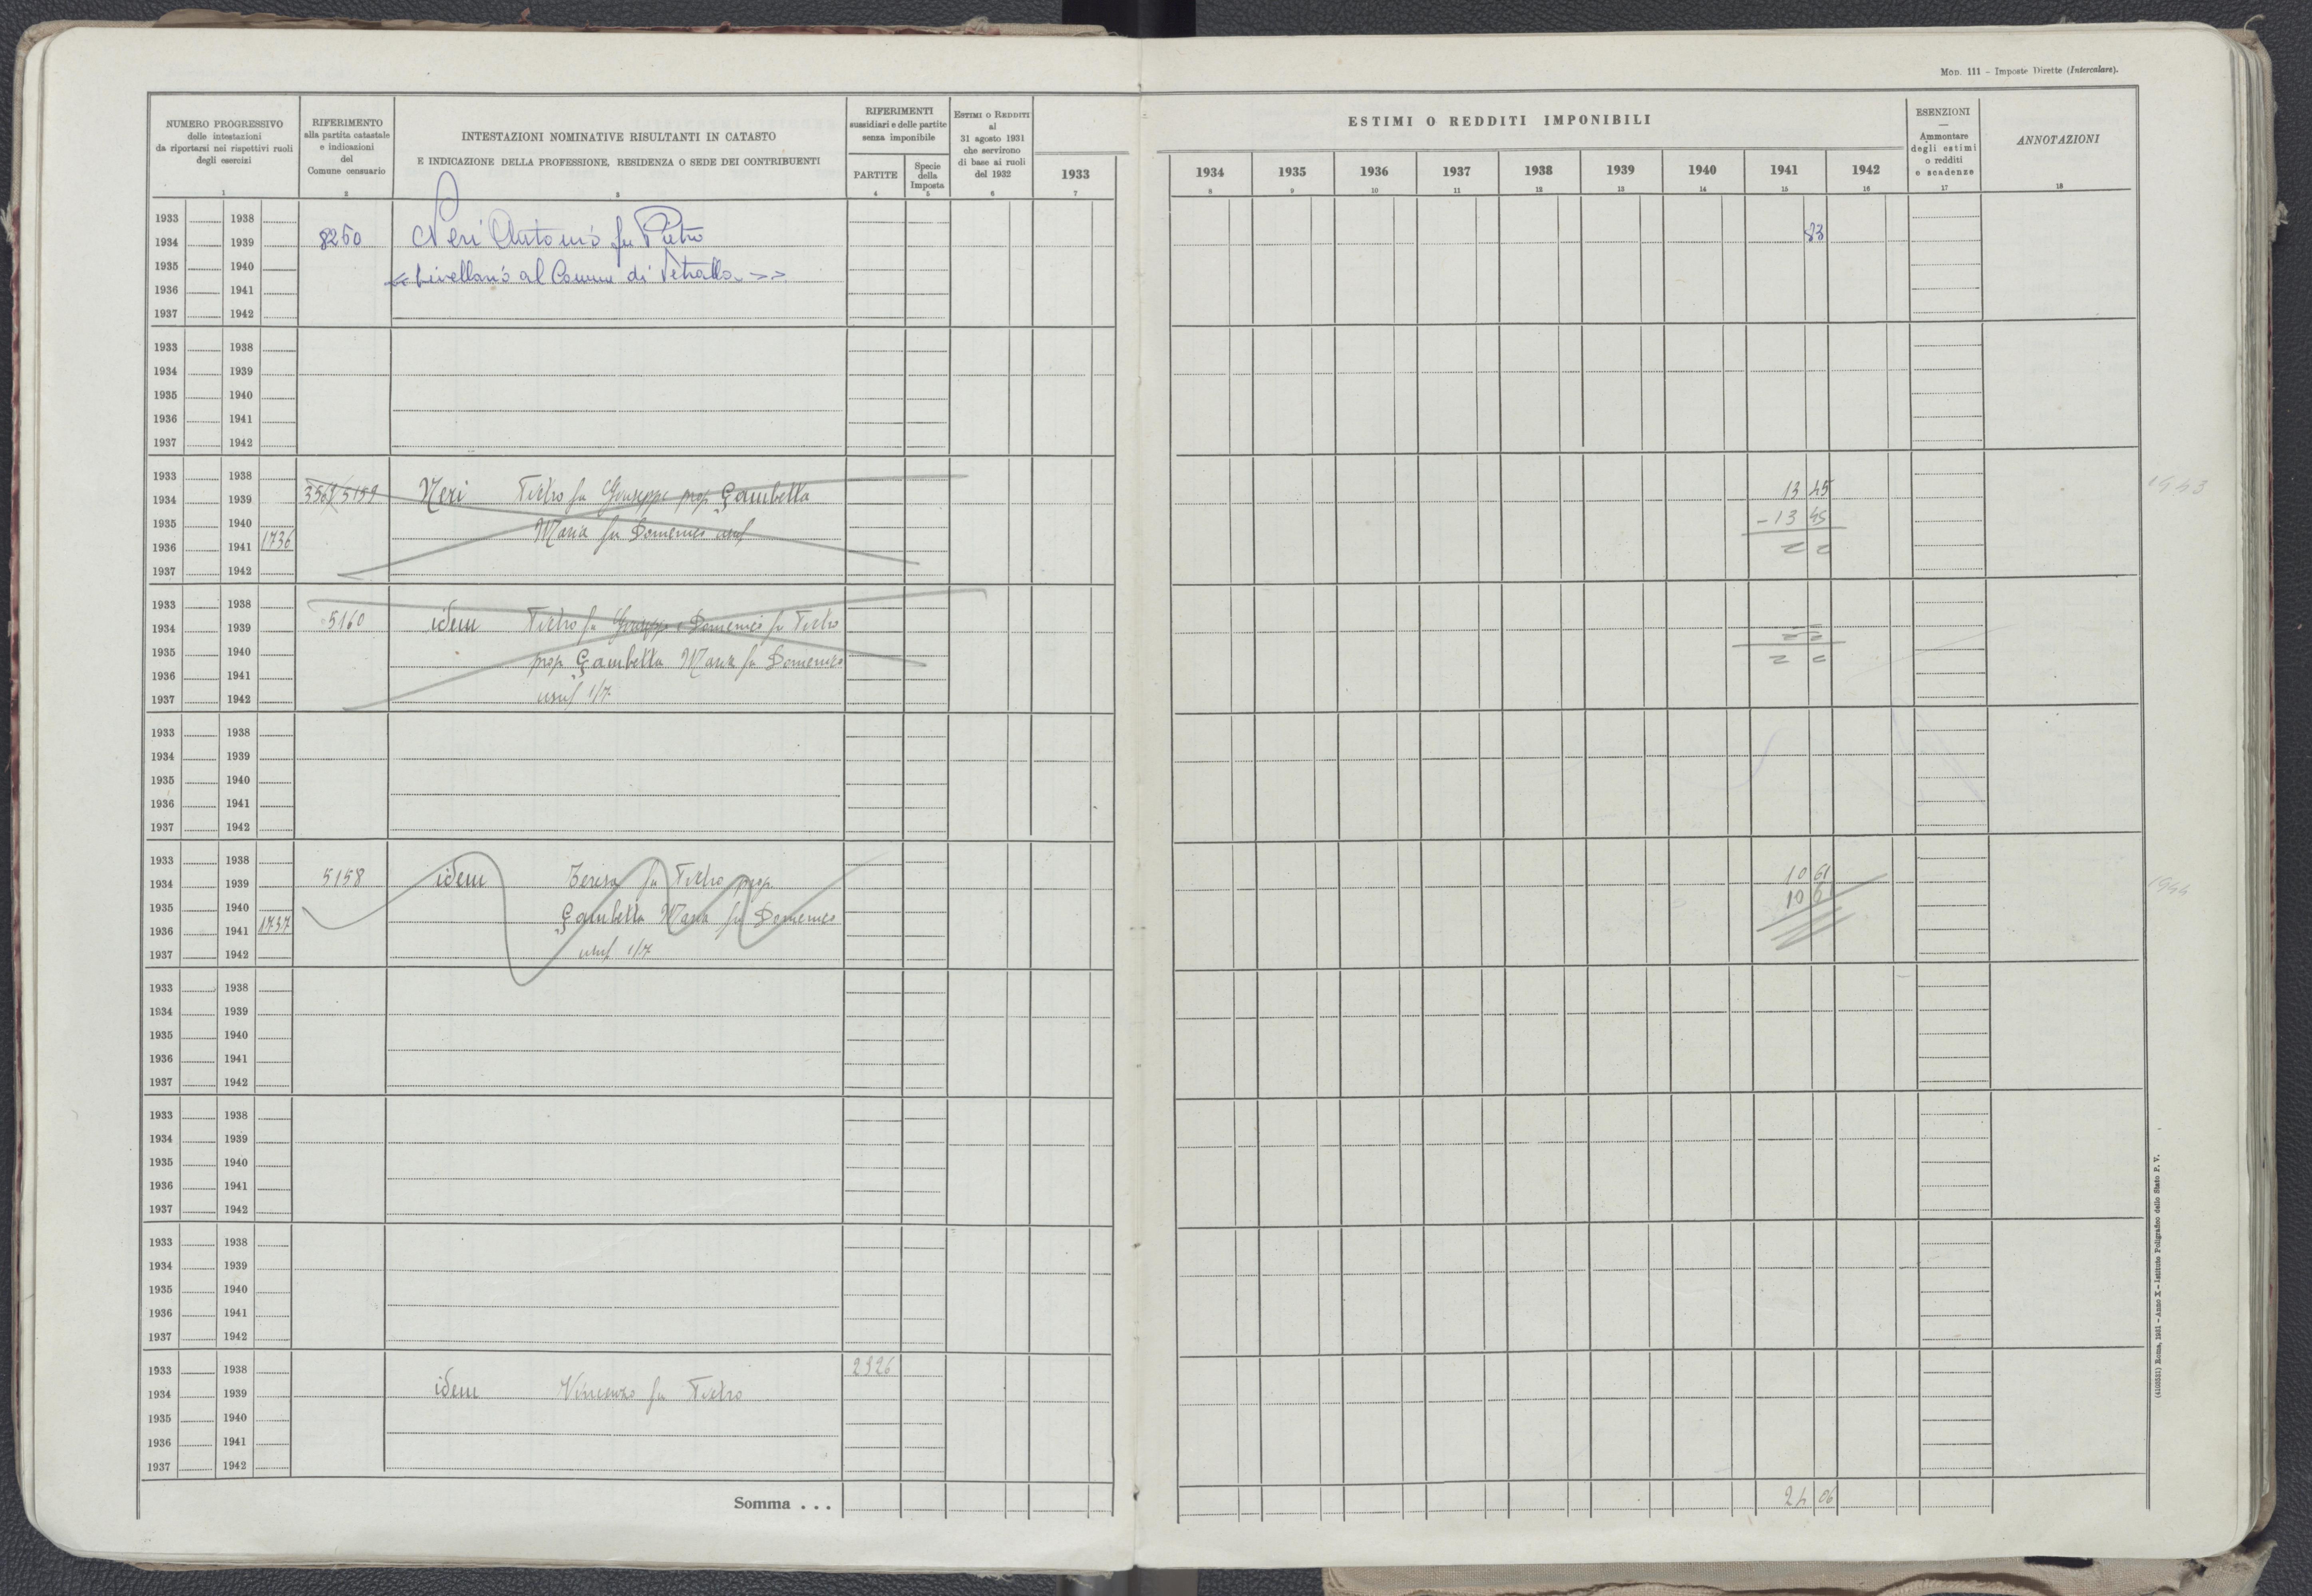 MOD. 111 – Imposte Dirette (Intercalare).
NUMERO PROGRESSIVO
delle intestazioni
da riportarsi nei rispettivi ruoli
degli esercizi
1
RIFERIMENTO
alla partita catastale
e indicazioni
del
Comune censuario
2
INTESTAZIONI NOMINATIVE RISULTANTI IN CATASTO
E INDICAZIONE DELLA PROFESSIONE, RESIDENZA O SEDE DEI CONTRIBUENTI
3
RIFERIMENTI
sussidiari e delle partite
senza imponibile
PARTITE
4
Specie
della
Imposta
5
ESTIMI O REDDITI
al
31 agosto 1931
che servirono
di base ai ruoli
del 1932
6
ESTIMI O REDDITI IMPONIBILI
1933 1934 1935 1936 1937 1938 1939 1940 1941 1942
7 8 9 10 11 12 13 14 15 16
ESENZIONI
—
Ammontare
degli estimi
o redditi
e scadenze
17
ANNOTAZIONI
18
1933 1938
1934 1939 8260 Neri Antonio fu Pietro 83
1935 1940 << Livellario al Comune di Vetralla >>
1936 1941
1937 1942
1933 1938
1934 1939
1935 1940
1936 1941
1937 1942
1933 1938
1934 1939 5159 Neri Pietro fu Giuseppe prop. Gambella 13 45 1943
1935 1940 Maria fu Domenico usuf – 13 45
1936 1941 1736
1937 1942
1933 1938
1934 1939 5160 idem Pietro fu Giuseppe e Domenico fu Pietro
1935 1940 prop. Gambella Maria fu Domenico
1936 1941
1937 1942 usuf 1/7
1933 1938
1934 1939
1935 1940
1936 1941
1937 1942
1933 1938
1934 1939 5158 idem Teresa fu Pietro prop. 10 61 1944
1935 1940 Gambella Maria fu Domenico 10 6
1936 1941 1737
1937 1942 usuf 1/7
1933 1938
1934 1939
1935 1940
1936 1941
1937 1942
1933 1938
1934 1939
1935 1940
1936 1941
1937 1942
1933 1938
1934 1939
1935 1940
1936 1941
1937 1942
1933 1938 2326
1934 1939 idem Vincenzo fu Pietro
1935 1940
1936 1941
1937 1942
Somma . . . 24 06
(4108531) Roma, 1931 – Anno X – Istituto Poligrafico dello Stato P. V.